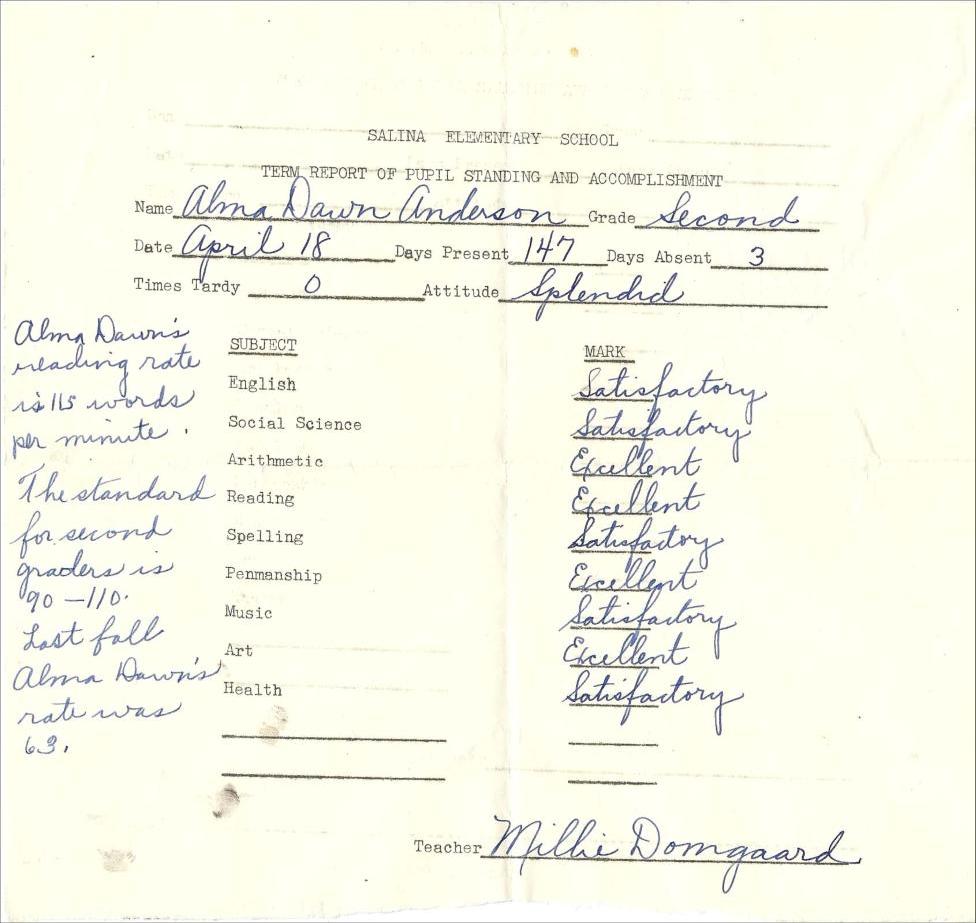 SALINA ELEMENTARY SCHOOL
TERM REPORT OF PUPIL STANDING AND ACCOMPLISHMENT
Name Alma Dawn Anderson Grade Second
Date April 18 Days Present 147 Days Absent 3
Times Tardy 0 Attitude Splendid
Alma Dawn's
reading rate
is 115 words
per minute.
The standard
for second
graders is
90 - 110.
Last fall
Alma Dawn's
rate was
63.
SUBJECT MARK
English Satisfactory
Social Science Satisfactory
Arithmetic Excellent
Reading Excellent
Spelling Satisfactory
Penmanship Excellent
Music Satisfactory
Art Excellent
Health Satisfactory
Teacher Millie Domgaard